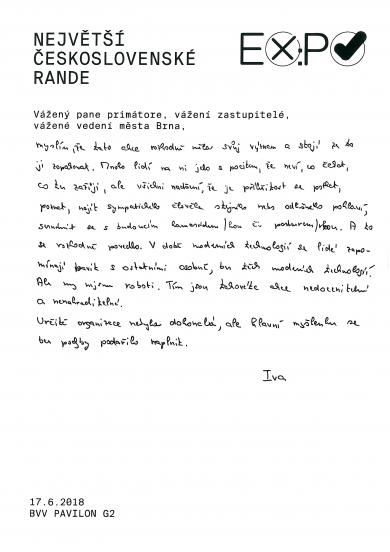 NEJVĚTŠÍ
ČESKOSLOVENSKÉ
RANDE
EX:PO
Vážený pane primátore, vážení zastupitelé,
vážené vedení města Brna,
myslím, že tato akce rozhodně měla svůj význam a stojí za to
ji zopakovat. Mnoho lidí na ni jelo s pocitem, že neví, co čekat,
co tu zažijí, ale všichni nadšení, že je příležitost se potkat,
poznat, najít sympatického člověka stejného nebo odlišného pohlaví,
seznámit se s budoucím kamarádem/kou či partnerem/kou. A to
se rozhodně povedlo. V době moderních technologií se lidé zapo-
mínají bavit s ostatními osobně, bez těch moderních technologií.
Ale my nejsme roboti. Tím jsou takovéto akce nedocenitelné
a nenahraditelné.
Určitě organizace nebyla dokonalá, ale hlavní myšlenku se
bez pochyby podařilo naplnit.
Iva
17.6.2018
BVV PAVILON G2